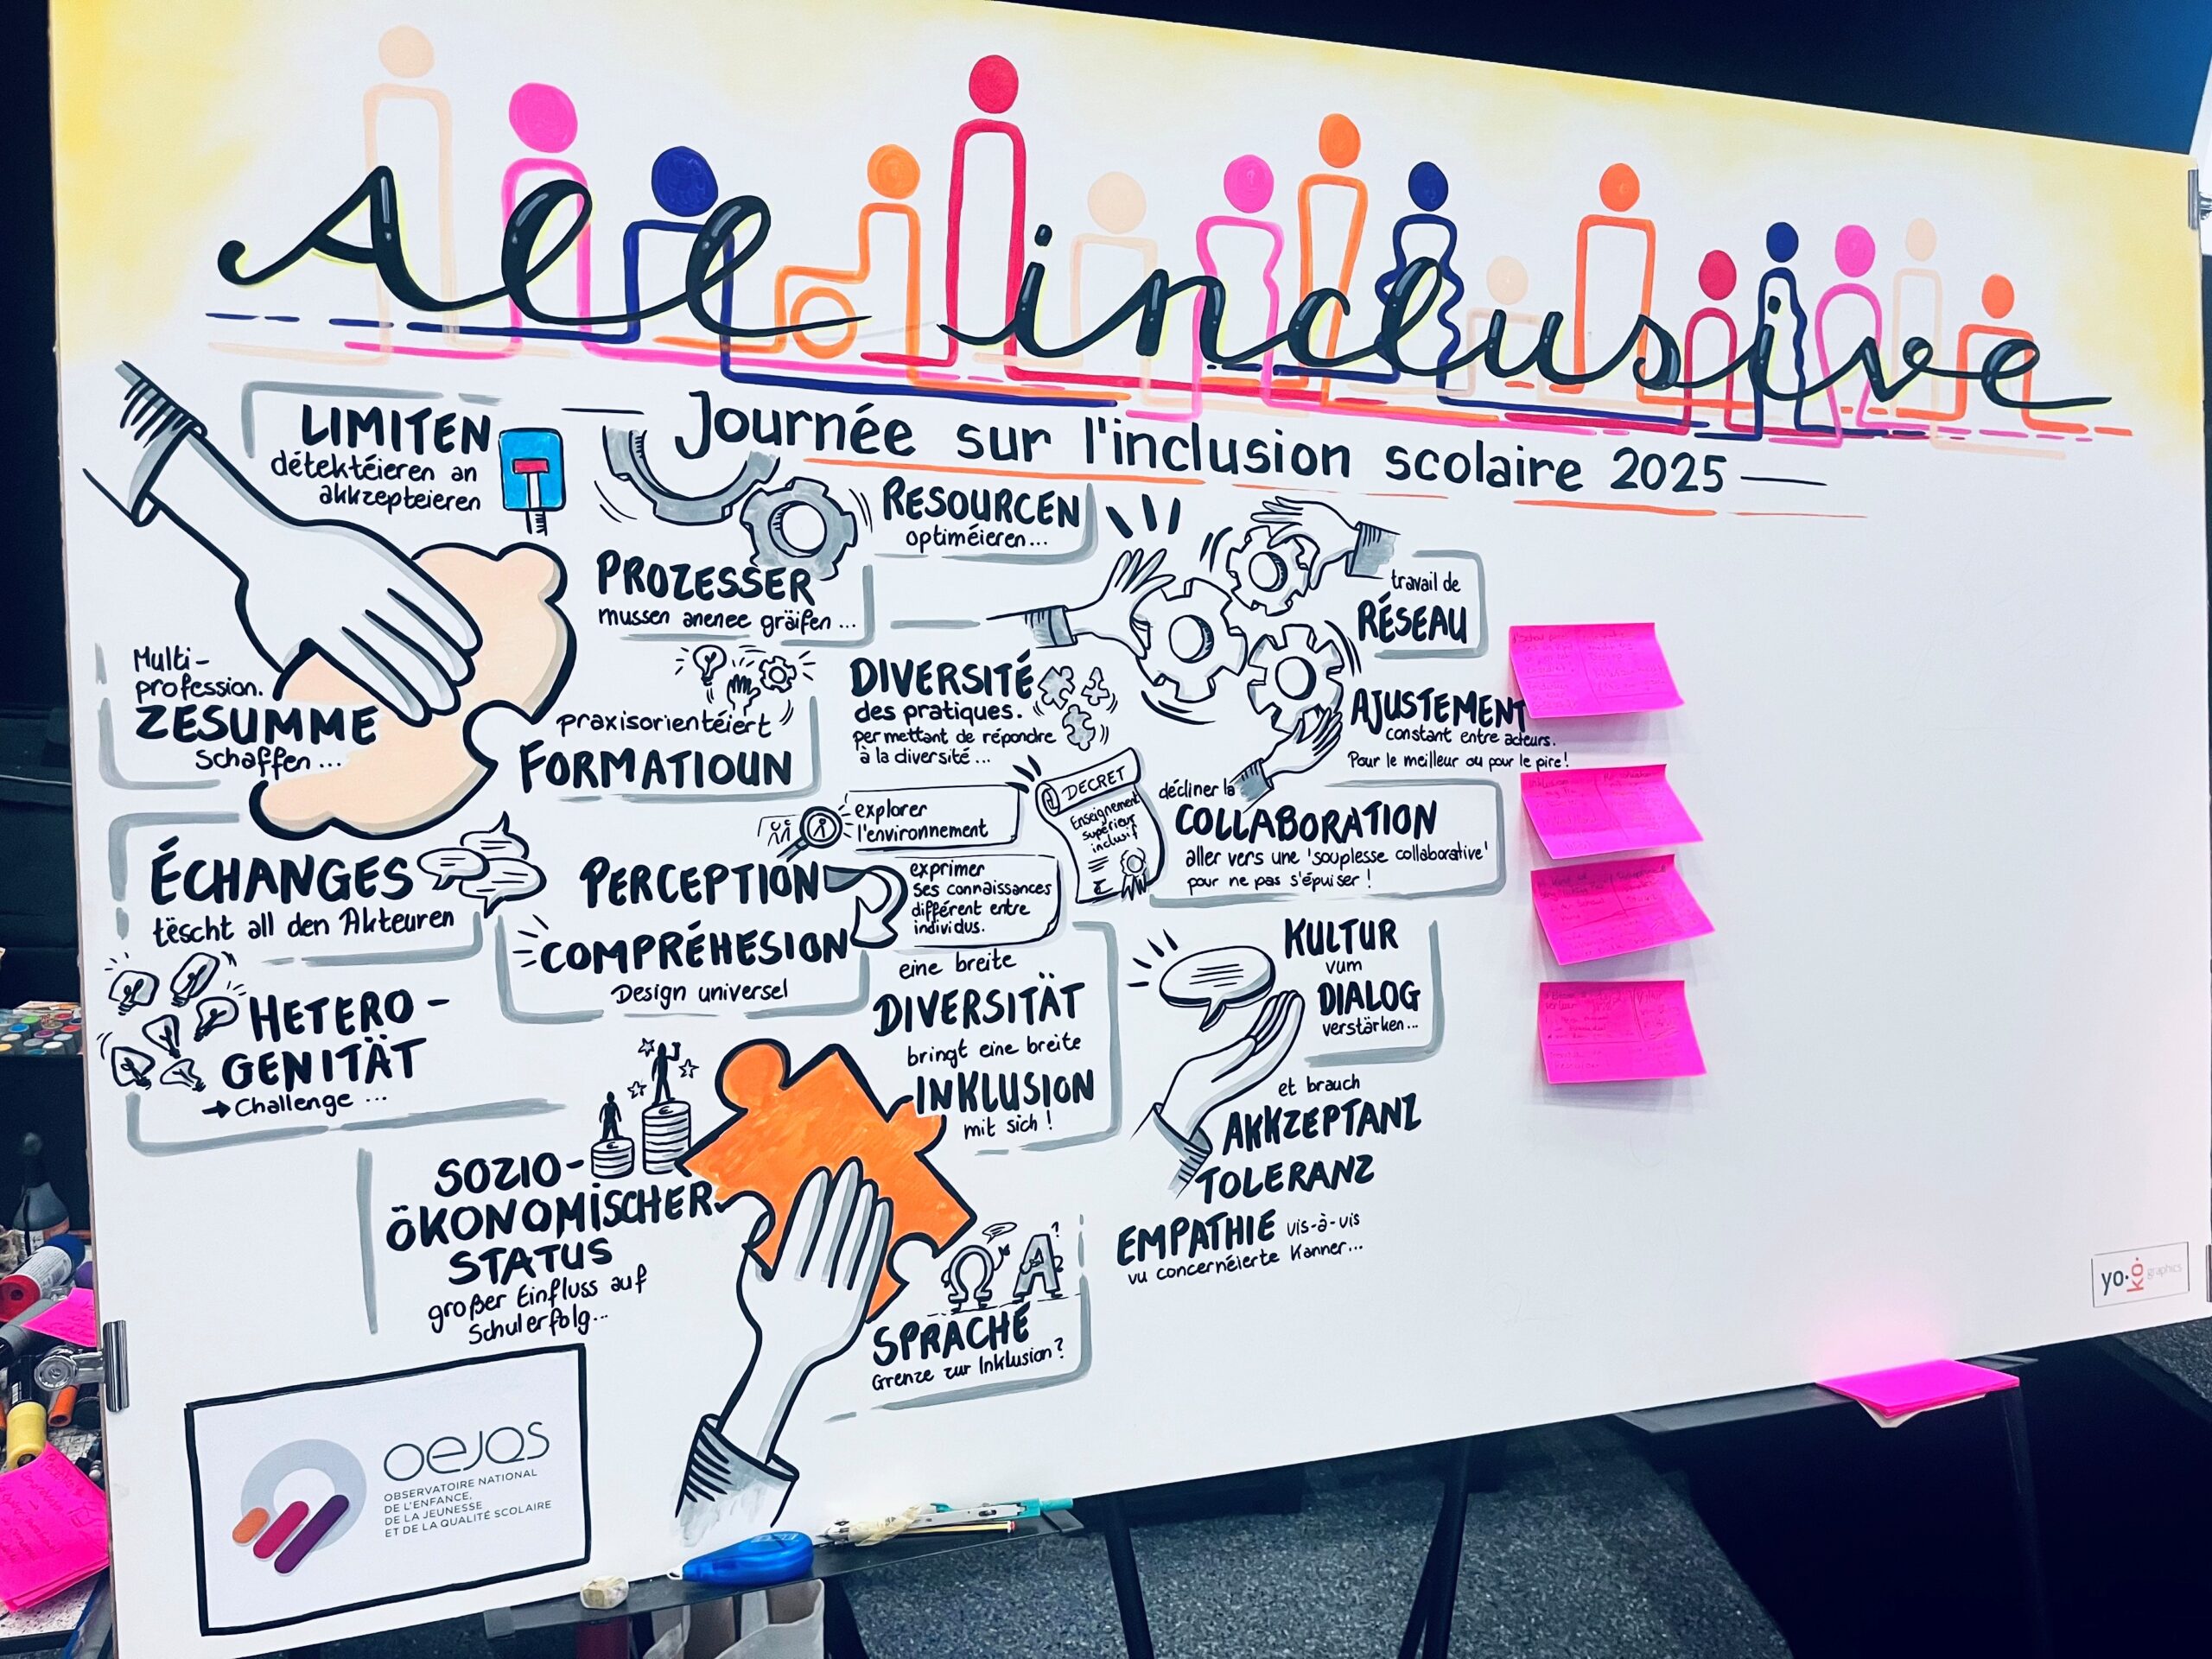 All inclusive
Journée sur l'inclusion scolaire 2025
LIMITEN
détektéieren an
akkzepteieren
RESOURCEN
optiméieren...
PROZESSER
mussen anenee gräifen ...
travail de
RÉSEAU
Multi-
profession.
ZESUMME
schaffen ...
praxisorientéiert
FORMATIOUN
DIVERSITÉ
des pratiques.
permettant de répondre
à la diversité ...
AJUSTEMENT
constant entre acteurs.
Pour le meilleur ou pour le pire!
DECRET
Enseignement
supérieur
inclusif
décliner la
COLLABORATION
aller vers une 'souplesse collaborative'
pour ne pas s'épuiser !
ÉCHANGES
tëscht all den Akteuren
explorer
l'environnement
PERCEPTION
exprimer
ses connaissances
différent entre
individus.
COMPRÉHESION
Design universel
HETERO-
GENITÄT
→ Challenge ...
eine breite
DIVERSITÄT
bringt eine breite
INKLUSION
mit sich !
KULTUR
vum
DIALOG
verstärken...
et brauch
AKKZEPTANZ
TOLERANZ
EMPATHIE vis-à-vis
vu concernéierte Kanner...
SOZIO-
ÖKONOMISCHER
STATUS
großer Einfluss auf
Schulerfolg...
Ω A ?
SPRACHE
Grenze zur Inklusion?
oejqs
OBSERVATOIRE NATIONAL
DE L'ENFANCE,
DE LA JEUNESSE
ET DE LA QUALITÉ SCOLAIRE
yo.kō graphics